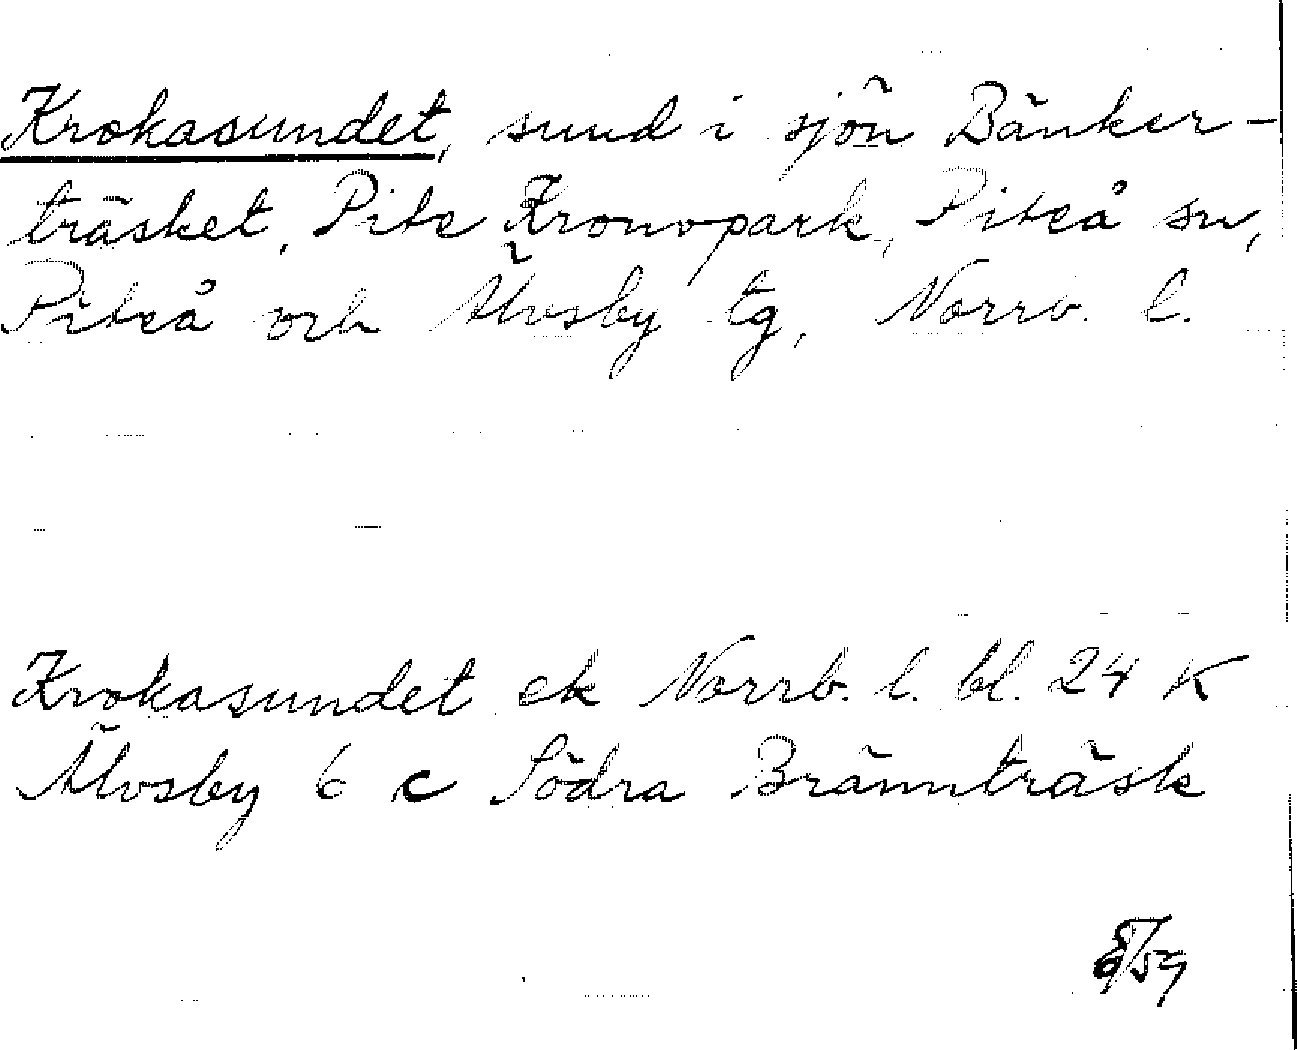 Krokasundet, sund i sjön Bänker-
träsket, Pite Kronopark, Piteå sn,
Piteå och Älvsby tg, Norrb. l.
Krokasundet ek Norrb. l. bl. 24 K
Älvsby 6 c Södra Brännträsk